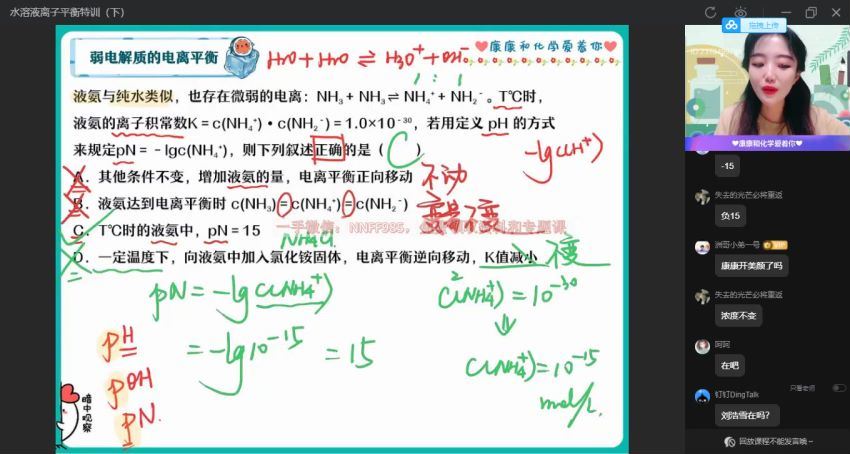 水溶液离子平衡特训（下）
拖拽上传
弱电解质的电离平衡
H₂O + H₂O ⇌ H₃O⁺ + OH⁻
1 : 1
♥康康和化学爱着你♥
液氨与纯水类似，也存在微弱的电离：NH₃ + NH₃ ⇌ NH₄⁺ + NH₂⁻。T℃时，
液氨的离子积常数K = c(NH₄⁺)•c(NH₂⁻) = 1.0×10⁻³⁰，若用定义 pH 的方式
来规定pN = －lgc(NH₄⁺)，则下列叙述正确的是（ C ）
-lgc(H⁺)
A．其他条件不变，增加液氨的量，电离平衡正向移动 不动
B．液氨达到电离平衡时 c(NH₃)=c(NH₄⁺)=c(NH₂⁻)
C．T℃时的液氨中，pN = 15
NH₄Cl
D．一定温度下，向液氨中加入氯化铵固体，电离平衡逆向移动，K值减小 不变
pN = -lg c(NH₄⁺)
= -lg 10⁻¹⁵ = 15
c²(NH₄⁺) = 10⁻³⁰
⇓
c(NH₄⁺) = 10⁻¹⁵
mol/L
pH
pOH
pN.
暗中观察
♥康康和化学爱着你♥
-15
失去的光芒必将重返
负15
洲哥小弟一号
康康开美颜了吗
失去的光芒必将重返
浓度不变
阿阿
在吧
只看老师
钉钉DingTalk
刘浩雪在吗？
回放课程不能发言噢～